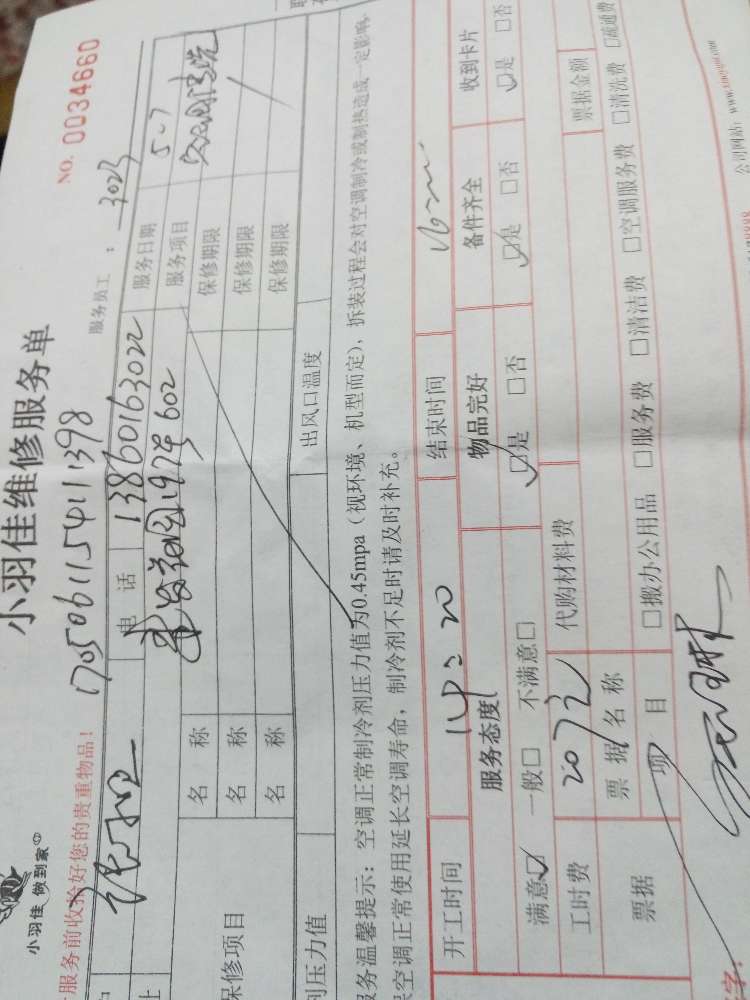 小羽佳 做到家
小羽佳维修服务单
NO. 0034660
服务前收拾好您的贵重物品！
170506115411398
服务员工 : 3023
电 话 13860163022 服务日期 5.7
602 服务项目
名 称 保修期限
保修项目 名 称 保修期限
名 称 保修期限
压力值 出风口温度
务温馨提示：空调正常制冷剂压力值为0.45mpa（视环境、机型而定），拆装过程会对空调制冷或制热造成一定影响，
空调正常使用延长空调寿命，制冷剂不足时请及时补充。
开工时间 14:20 结束时间
服务态度 物品完好 备件齐全 收到卡片
满意☑ 一般□ 不满意□ ☑是 □否 ☑是 □否 ☑是 □否
工时费 207元 代购材料费
票据 票据名称 票据金额
项 目 □搬办公用品 □服务费 □清洁费 □空调服务费 □清洗费 □疏通费
字：
公司网站：www.xiaoyujia.com